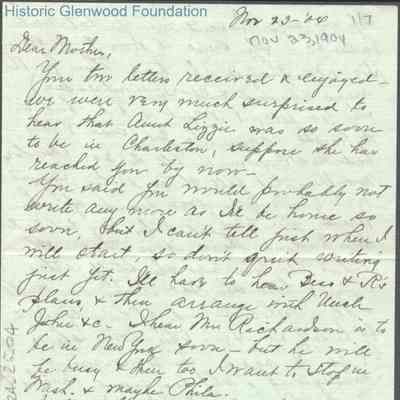 Historic Glenwood Foundation
Nov 23-'04 1/7
Nov 23, 1904
Dear Mother,
Your two letters received & enjoyed -
we were very much surprised to
hear that Aunt Lizzie was so soon
to be in Charleston, suppose she has
reached you by now -
You said you would probably not
write any more as I'll be home so
soon, but I can't tell just when I
will start, so don't quit writing
just yet. I'll have to hear Bess & R's
plans & then arrange with Uncle
John &c - I hear Mr Richardson is to
be in New York soon - but he will
be busy & then too I want to stop in
Wash. & maybe Phila.